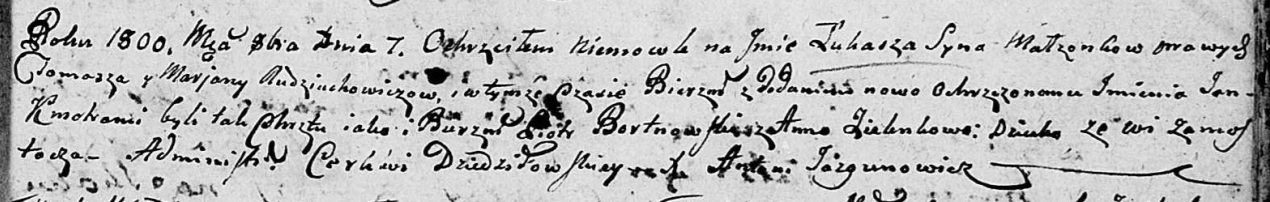 Roku 1800. Mca 8bra Dnia 7. Ochrzciłem Niemowle na Jmie Łukasza Syna Małżonkow prawych
Tomasza y Marjany Audziuchowiczow, i w tymże Czasie Bierzm z Dodaniem nowo Ochrzczonemu Jmienia Jan
Kmotrami byli tak Chrztu iako i Bierzm Piotr Bortnowski z Anno Zielonkowo: Dziecko ze wi Zamos
tocza Administr Cerkwi Dziedziłowskiey Antoni Jazgunowicz